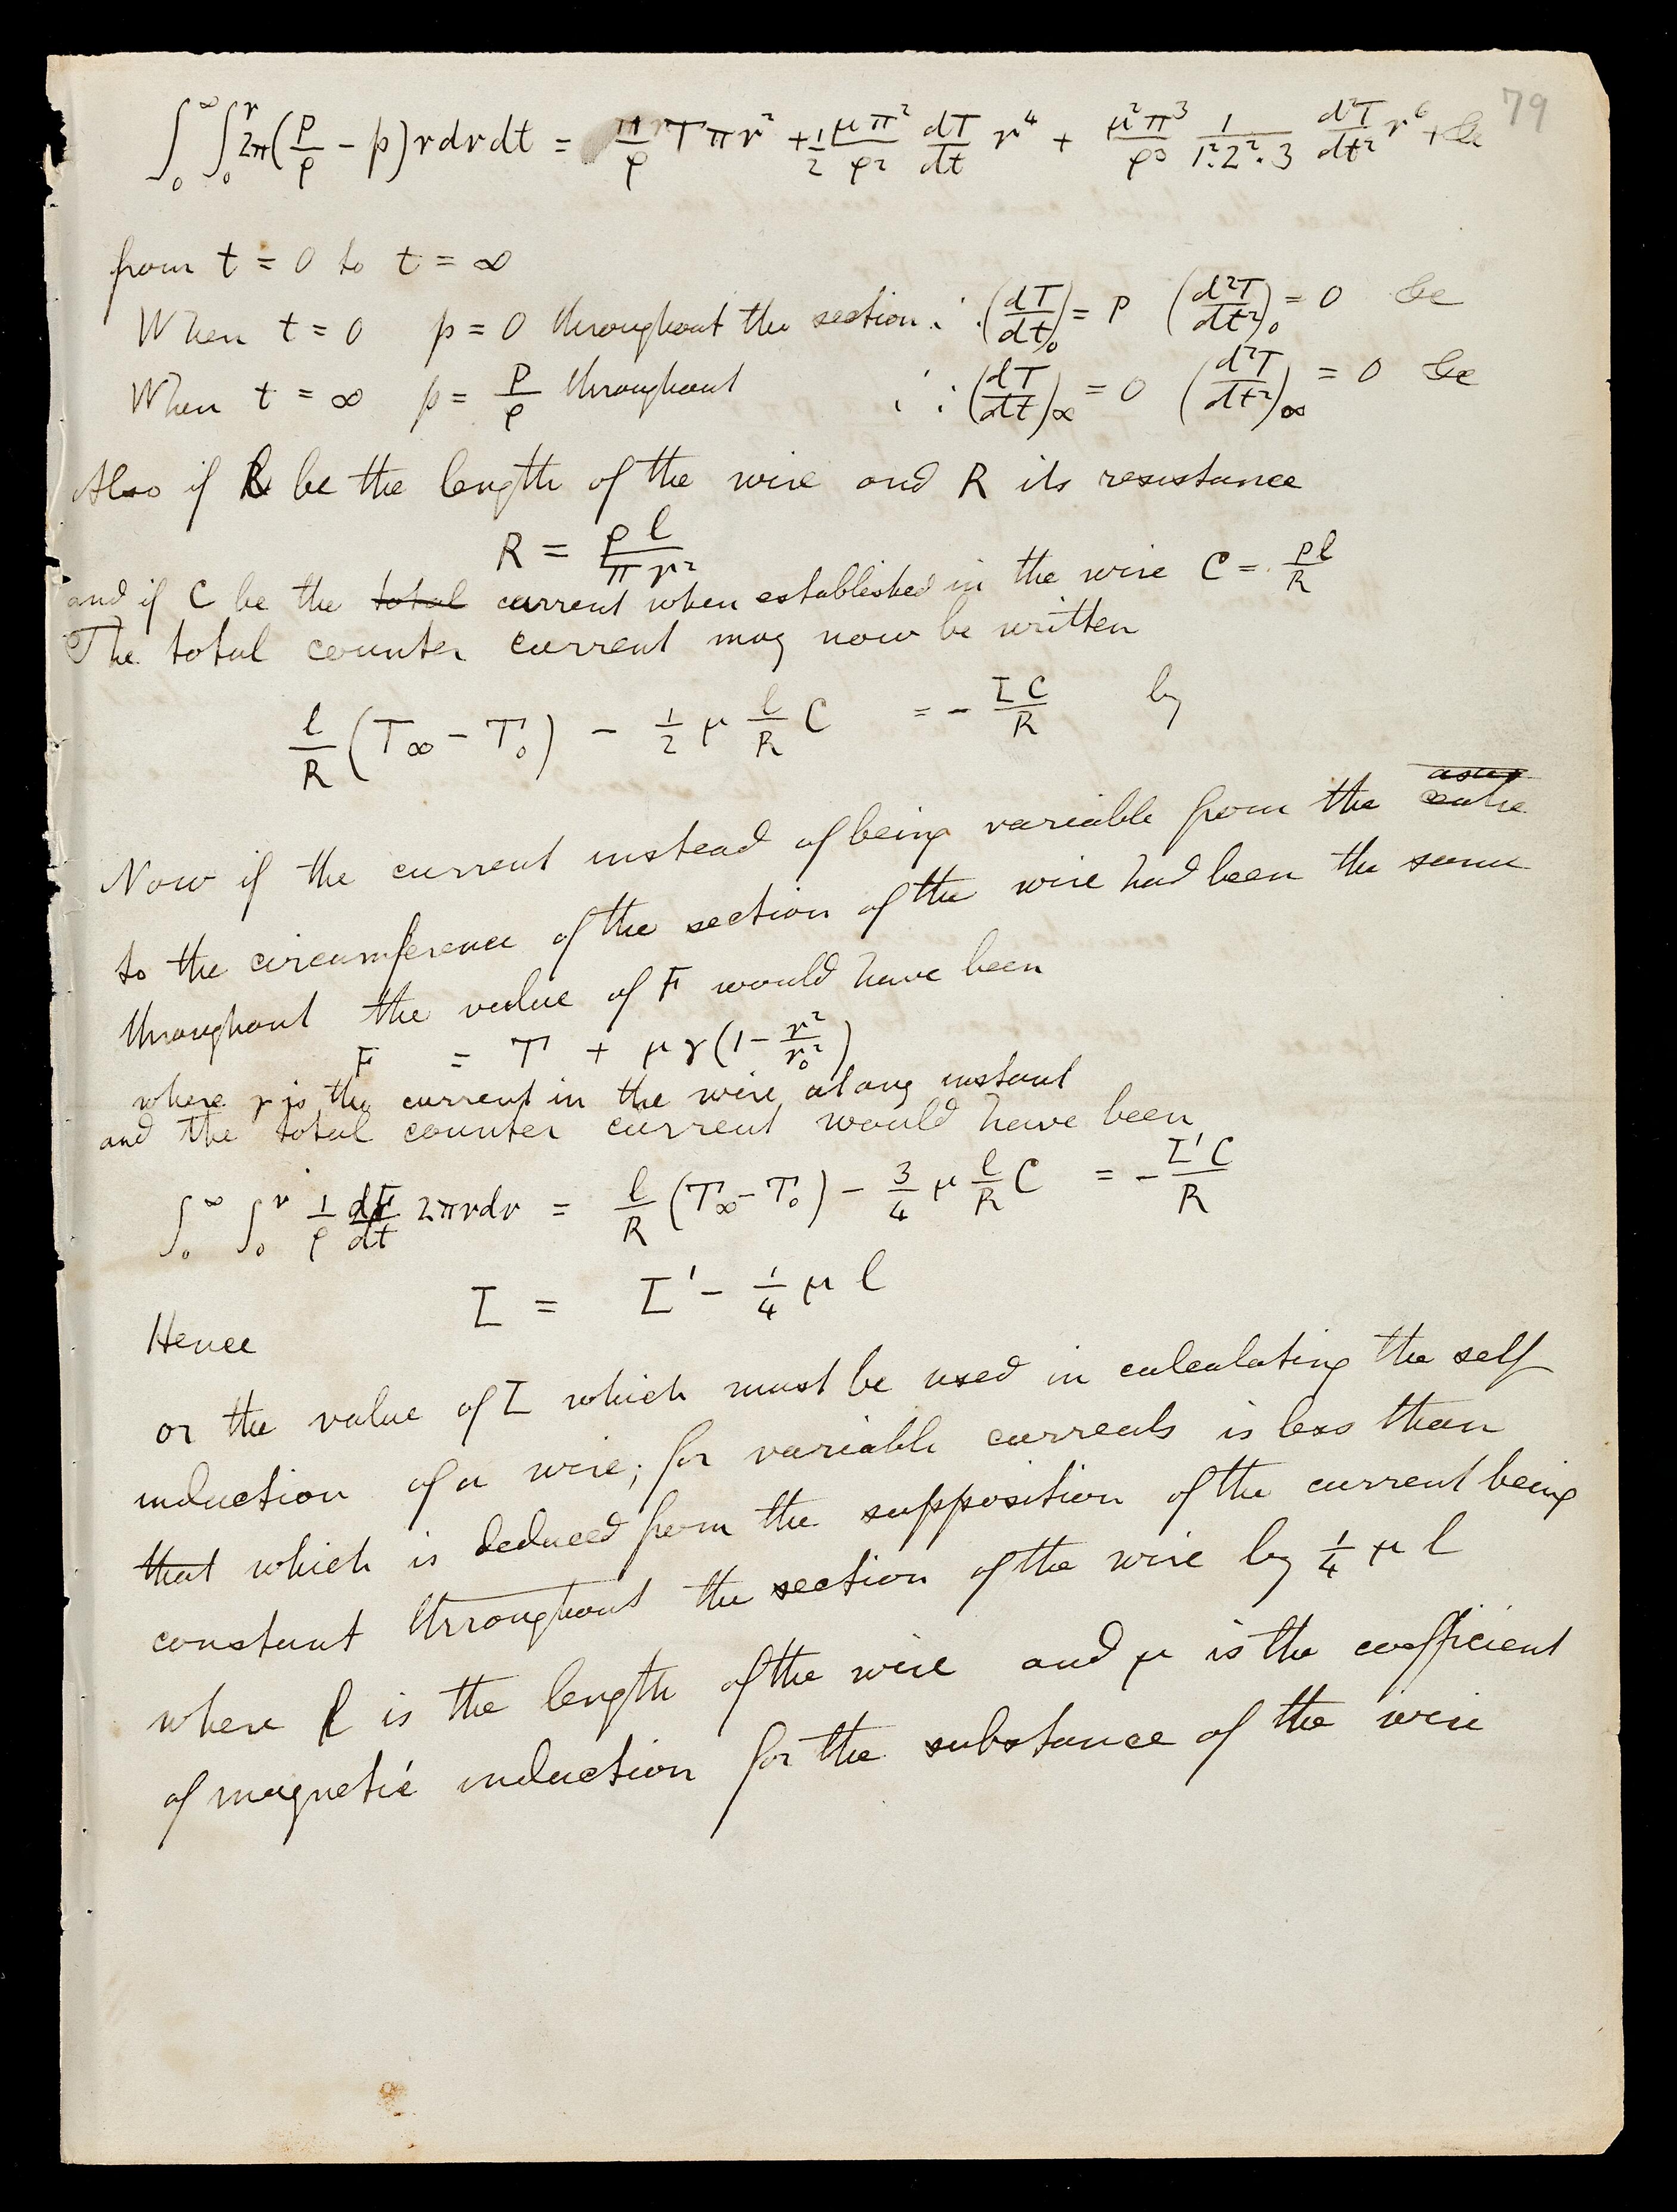 79
∫₀^∞ ∫₀^r 2π(P/ρ − p) r dr dt = T π r² + 1/2 μπ²/ρ² dT/dt r⁴ + μ²π³/ρ³ 1/(1².2².3) d²T/dt² r⁶ + &c
from t = 0 to t = ∞
When t = 0 p = 0 throughout the section ∴ (dT/dt)₀ = P (d²T/dt²)₀ = 0 &c
When t = ∞ p = P/ρ throughout ∴ (dT/dt)∞ = 0 (d²T/dt²)∞ = 0 &c
Also if l be the length of the wire and R its resistance
R = ρl/πr²
and if C be the total current when established in the wire C = Pl/R
The total counter current may now be written
l/R (T∞ − T₀) − 1/2 μ l/R C = − LC/R by
Now if the current instead of being variable from the centre
to the circumference of the section of the wire had been the same
throughout the value of F would have been
F = T + μγ(1 − r²/r₀²)
where γ is the current in the wire at any instant
and the total counter current would have been
∫₀^∞ ∫₀^r 1/ρ dF/dt 2πrdr = l/R (T∞ − T₀) − 3/4 μ l/R C = − L'C/R
Hence L = L' − 1/4 μ l
or the value of L which must be used in calculating the self
induction of a wire; for variable currents is less than
that which is deduced from the supposition of the current being
constant throughout the section of the wire by 1/4 μ l
where l is the length of the wire and μ is the coefficient
of magnetic induction for the substance of the wire